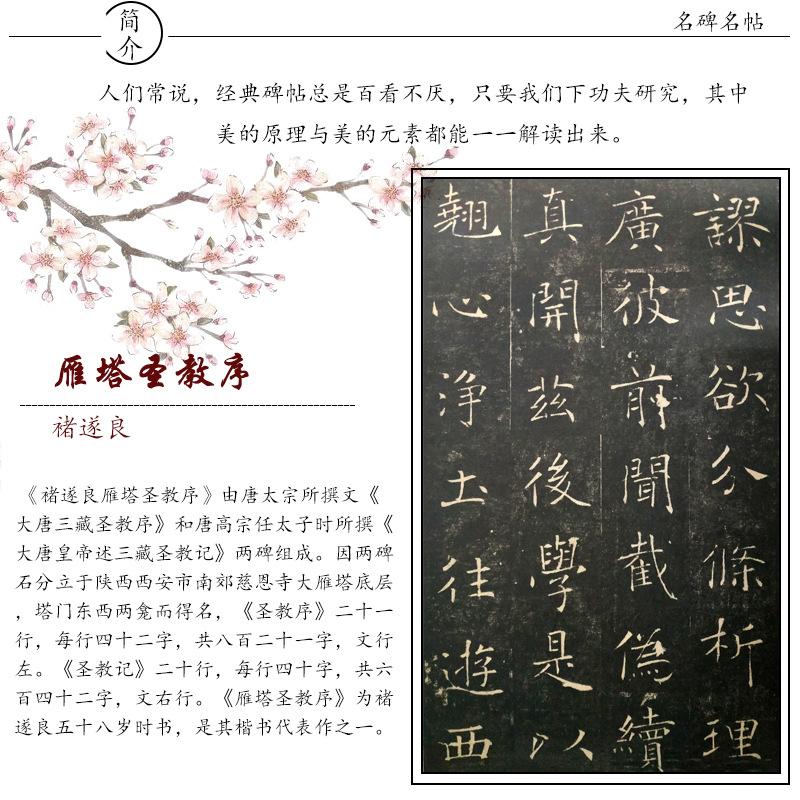 简介
名碑名帖
人们常说，经典碑帖总是百看不厌，只要我们下功夫研究，其中
美的原理与美的元素都能一一解读出来。
雁塔圣教序
褚遂良
《褚遂良雁塔圣教序》由唐太宗所撰文《
大唐三藏圣教序》和唐高宗任太子时所撰《
大唐皇帝述三藏圣教记》两碑组成。因两碑
石分立于陕西西安市南郊慈恩寺大雁塔底层
，塔门东西两龛而得名，《圣教序》二十一
行，每行四十二字，共八百二十一字，文行
左。《圣教记》二十行，每行四十字，共六
百四十二字，文右行。《雁塔圣教序》为褚
遂良五十八岁时书，是其楷书代表作之一。
謬思欲分條析理
廣彼前聞截偽續
真開茲後學是以
翹心淨土往遊西